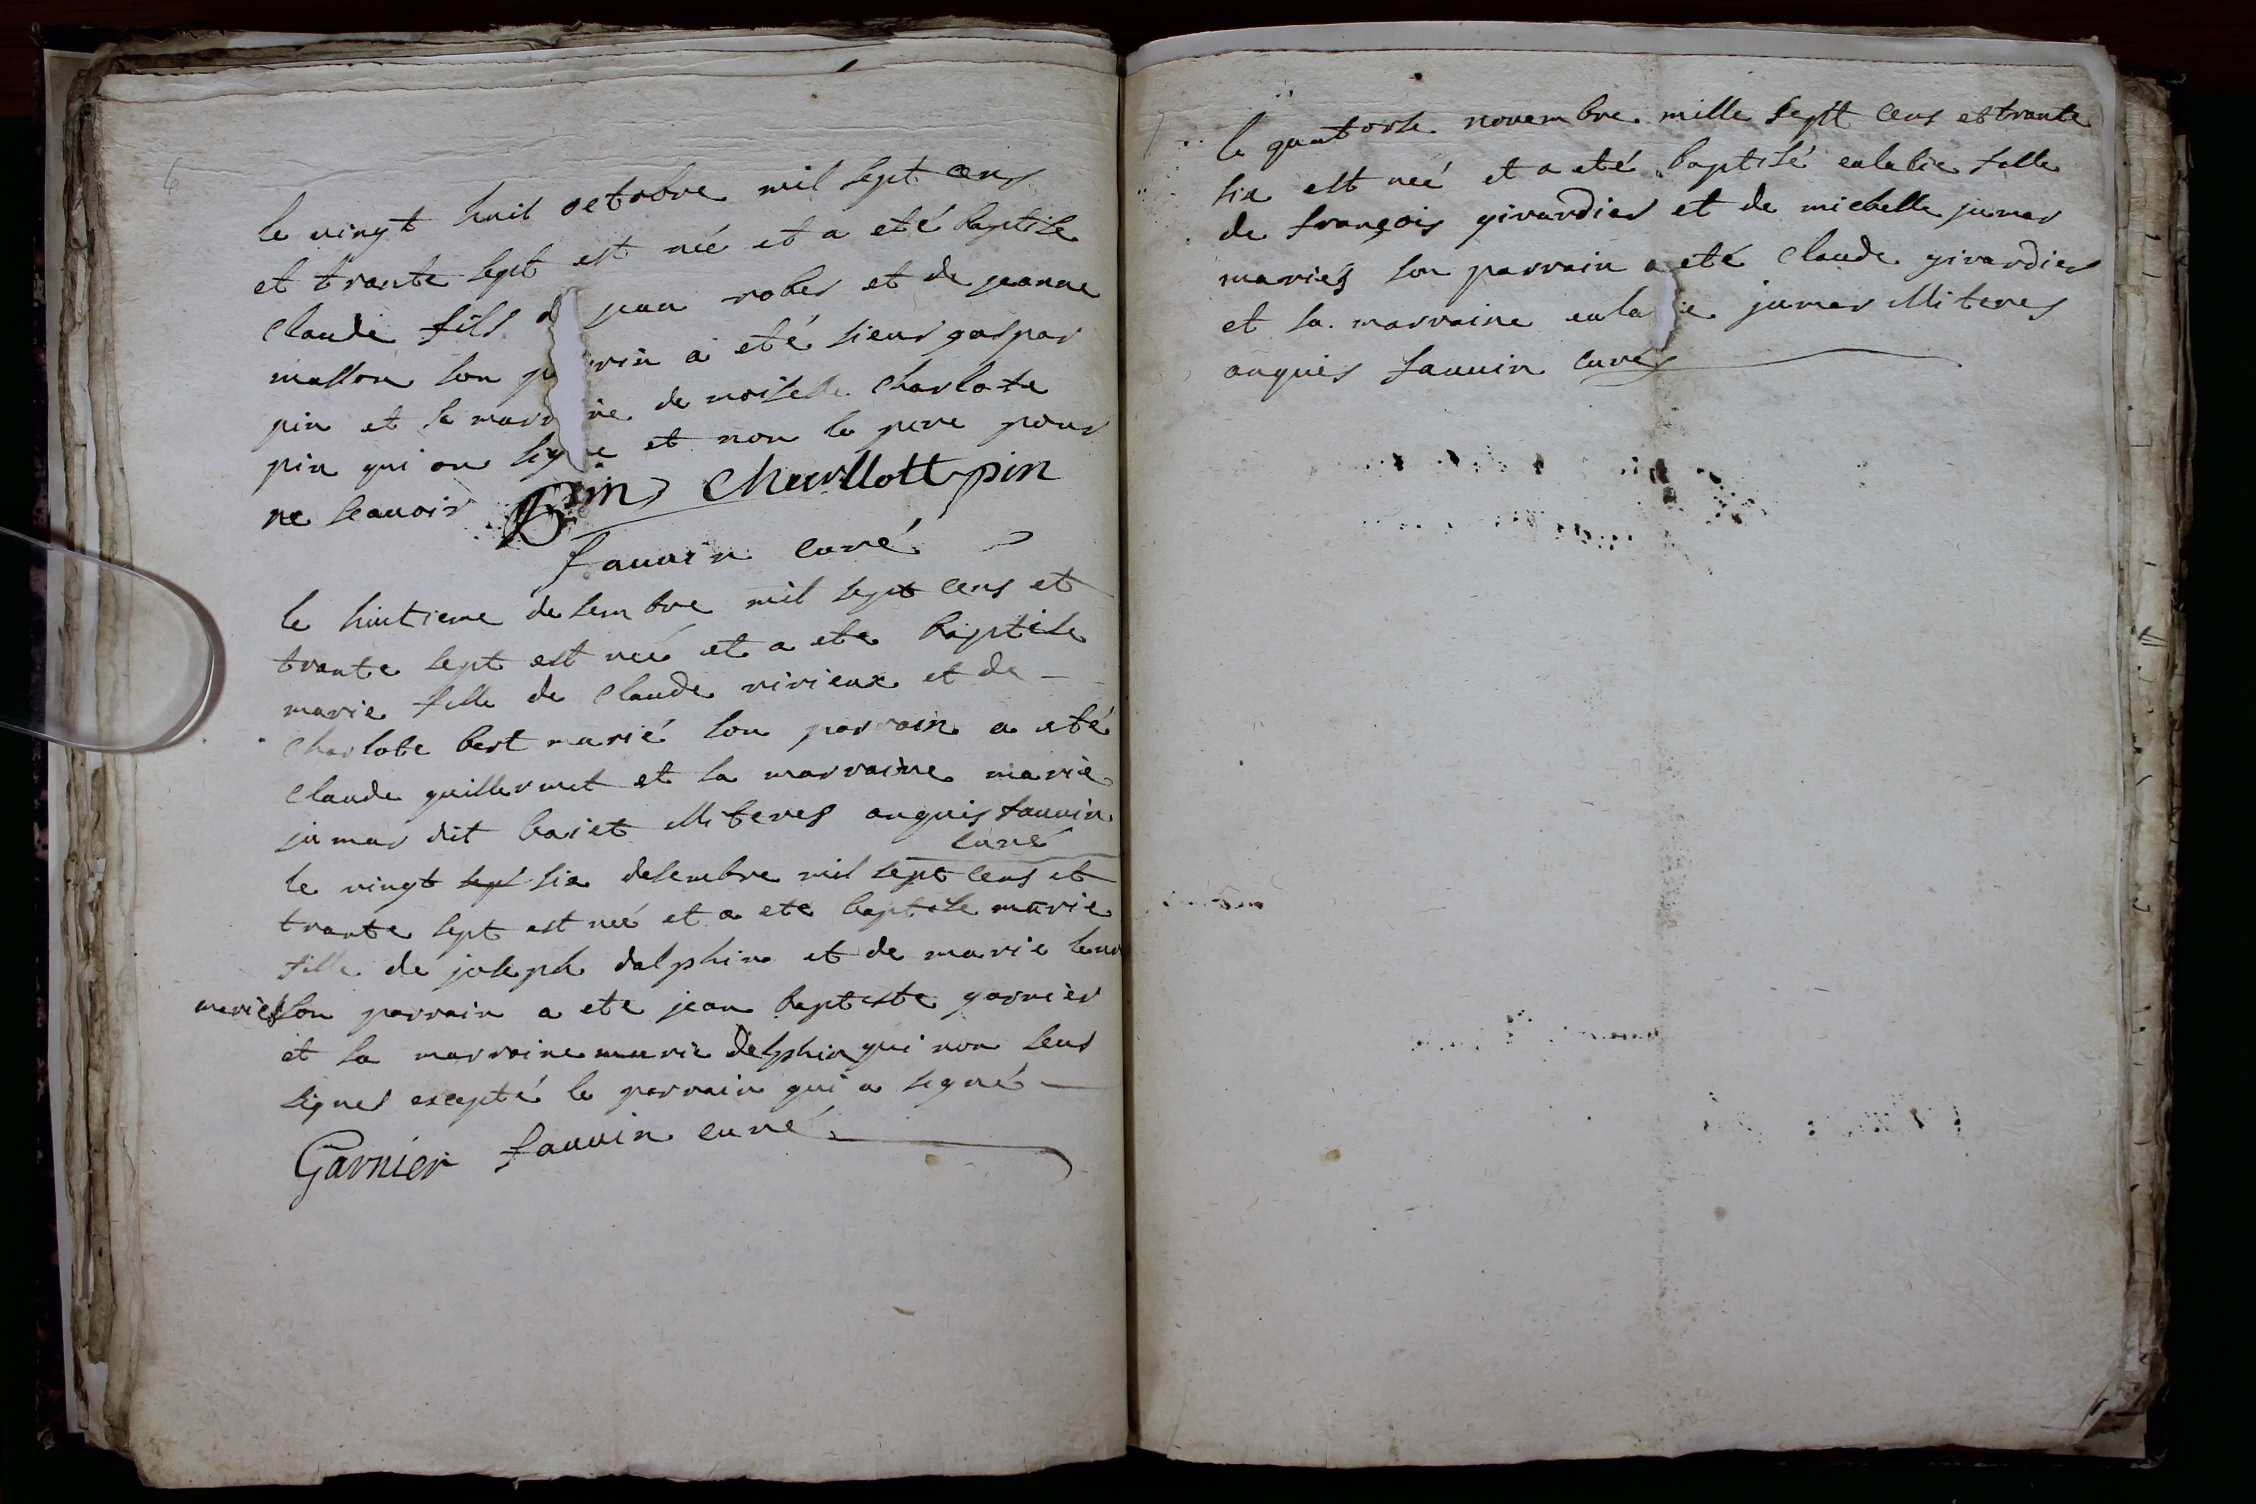 6
le vingt huit octobre mil sept cens
et trante sept est néé et a eté baptise
claude fils d jean rober et de jeanne
masson son p rin a eté sieur gaspar
pin et sa marr ine demoiselle charlote
pin qui on sig e et non le pere pour
ne scauoir Pin charllott pin
fauuin curé
le huitieme desembre mil sept cens et
trante sept est néé et a ete baptise
marie fille de clauderirieux et de
charlote bert marié son parrain a eté
claude guillermet et sa marraine marie
jumar dit baiet Miteres anquis fauuin
curé
le vingt sept six desembre mil sept cens et
trante sept est néé et a ete baptise marie
fille de joseph dalphin et de marie
maries son parrain a ete jean baptiste garnier
et sa marraine marie delphin qui non seus
signer excepté le parrain qui a signé
Garnier fauuin curé
7
le quatorse novembre mille sept cens et trante
six est néé et a eté baptisé eulalie fille
de françois girardier et de michelle jumar
mariés son parrain a eté claude girardier
et sa marraine eula ie jumar Miteres
anquis fauuin curé